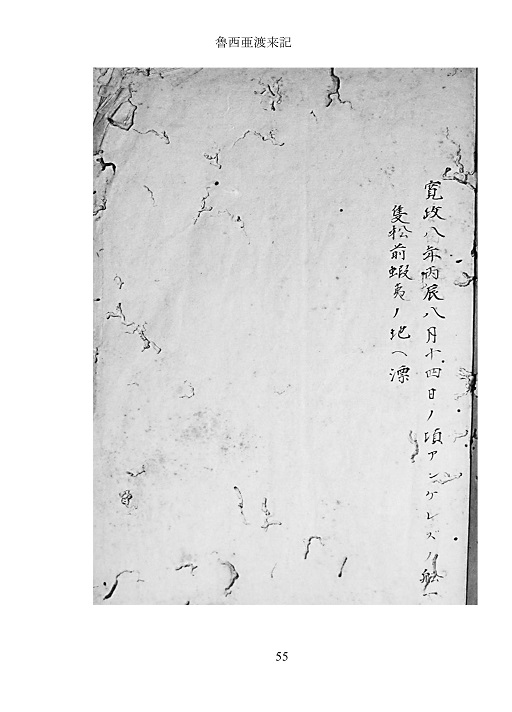 魯西亜渡来記
寛政八年丙辰八月十四日ノ頃アンゲレズノ船一
隻松前蝦夷ノ地ヘ漂
55